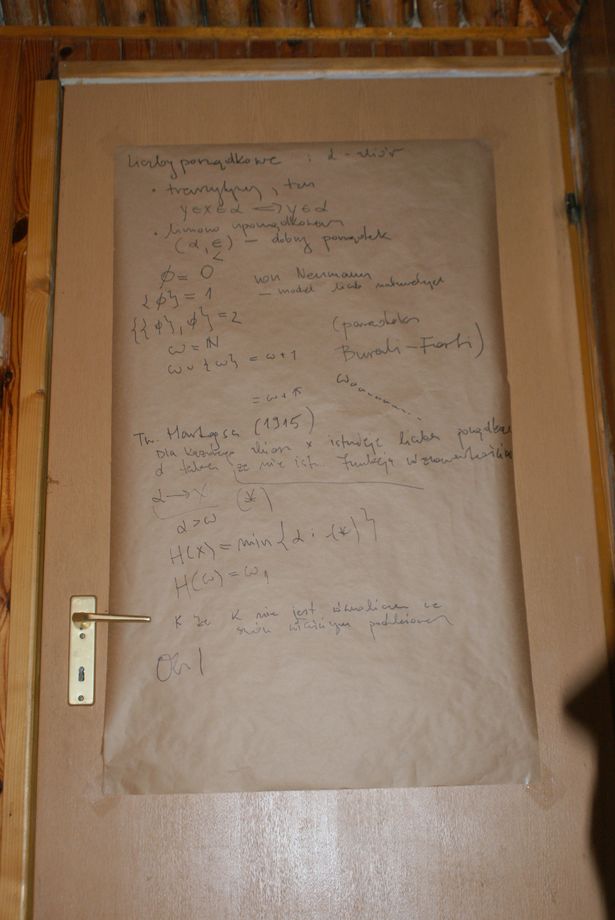 liczby porządkowe : α - zbiór
• tranzytywny, tzn
y ∈ x ∈ α ⟹ y ∈ α
• liniowo uporządkowany
(α, ∈) — dobry porządek
<
ϕ = 0 von Neumann
{ϕ} = 1 — model liczb naturalnych
{{ϕ}, ϕ} = 2
ω = ℕ (paradoks
ω ∪ {ω} = ω + 1 Burali-Forti)
Tw. Hartogsa (1915)
Dla każdego zbioru x istnieje liczba porządkowa
α taka, że nie istn. funkcja wzajemnościowa
α → X (*)
α > ω
H(X) = min {α : (*)}
H(ω) = ω₁
K że K nie jest ze
swoim właściwym podzbiorem